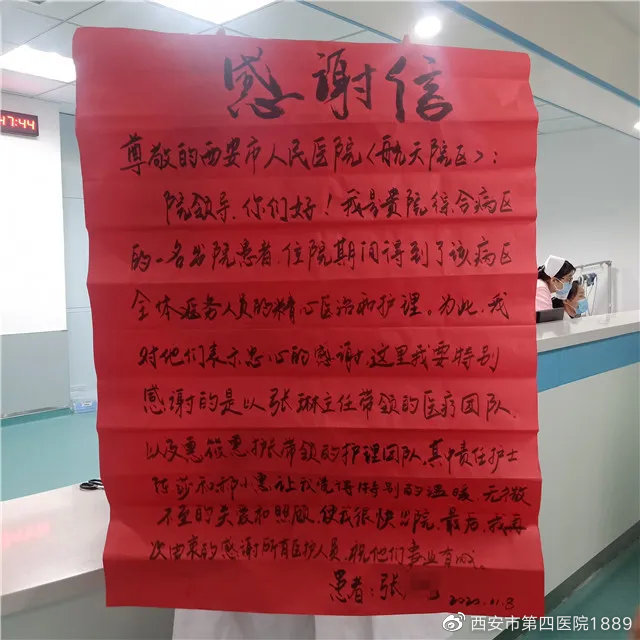 47:44
感谢信
尊敬的西安市人民医院〈航天院区〉:
院领导，你们好！我是贵院综合病区
的一名出院患者，住院期间得到了该病区
全体医务人员的精心医治和护理。为此，我
对他们表示忠心的感谢，这里我要特别
感谢的是以张琳主任带领的医疗团队，
以及惠筱惠护长带领的护理团队，其中责任护士
陈莎和邢小惠，让我觉得特别的温暖，无微
不至的关爱和照顾，使我很快出院，最后，我再
次由衷的感谢所有医护人员，祝他们事业有成。
患者：张
2020.11.8
西安市第四医院1889